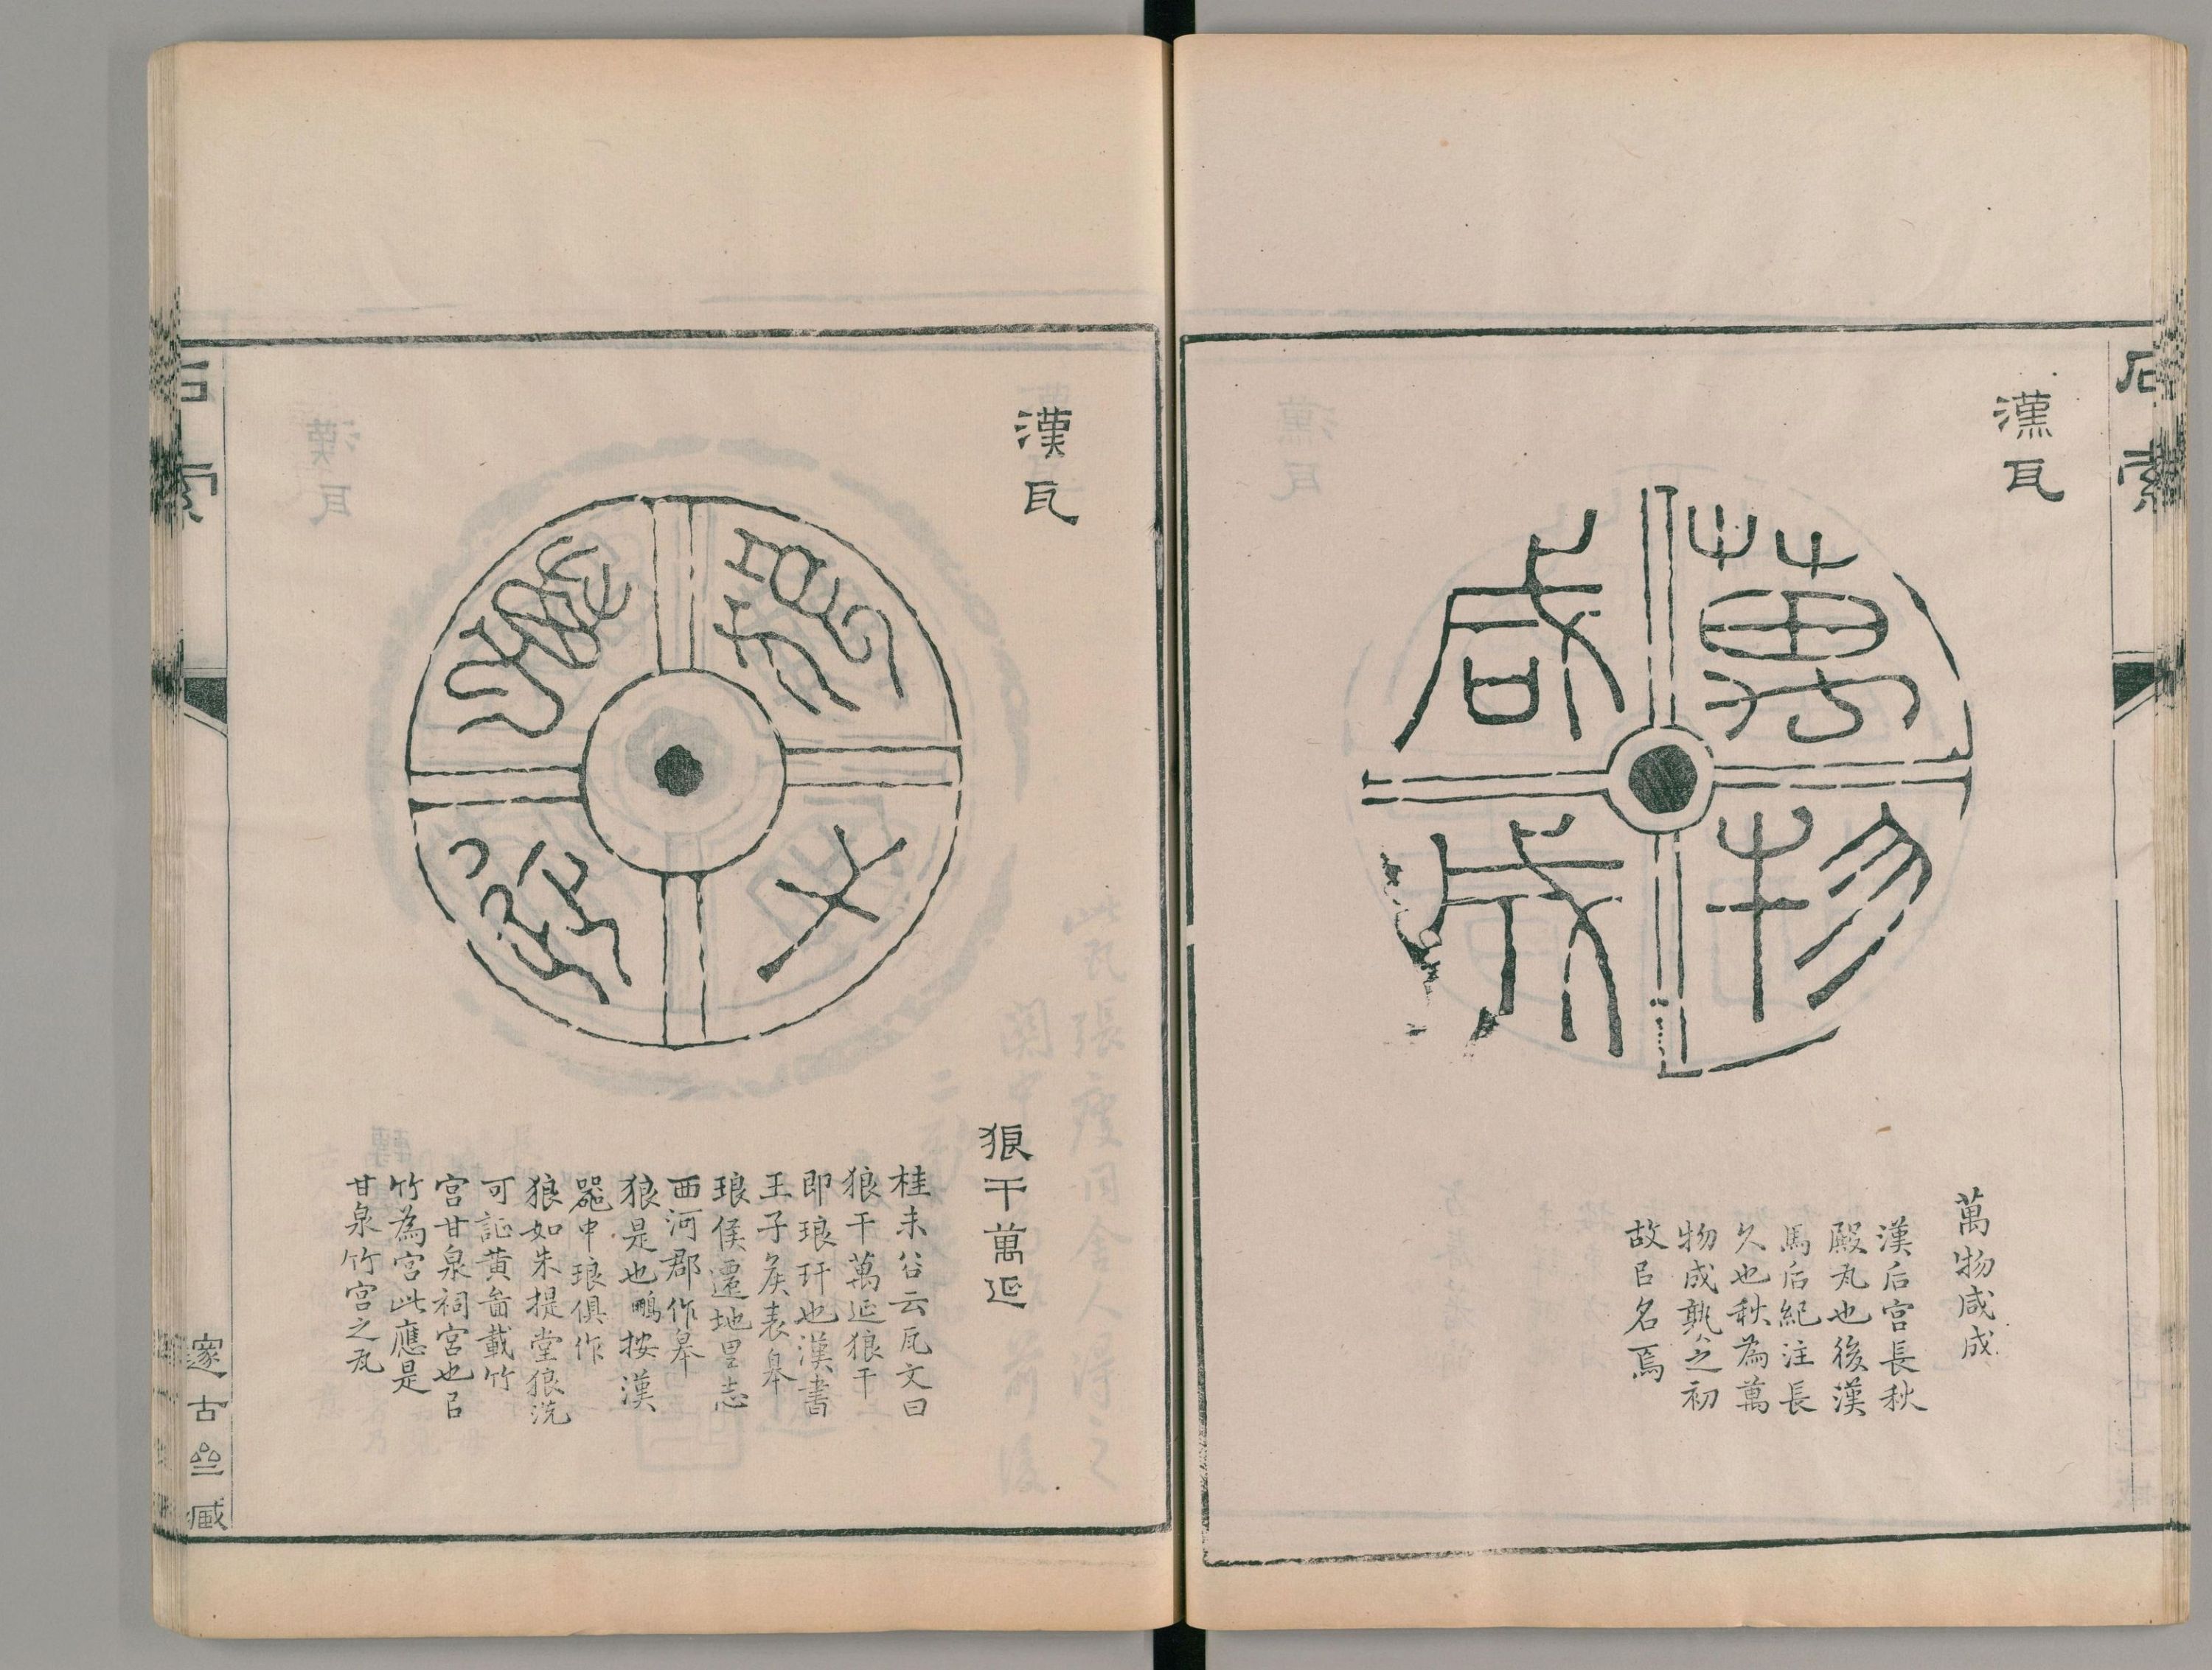 石索
漢瓦
萬物
咸成
萬物咸成
漢后宮長秋
殿瓦也後漢
馬后紀注長
久也秋為萬
物成熟之初
故㠯名焉
漢瓦
狼干
萬延
狼干萬延
桂未谷云瓦文曰
狼干萬延狼干
即琅玕也漢書
王子矦表皋
琅侯遷地里志
西河郡作皋
狼是也鵬按漢
器中琅俱作
狼如朱提堂狼洗
可証黃啚載竹
宮甘泉祠宮也㠯
竹為宮此應是
甘泉竹宮之瓦
石索
邃古亝臧